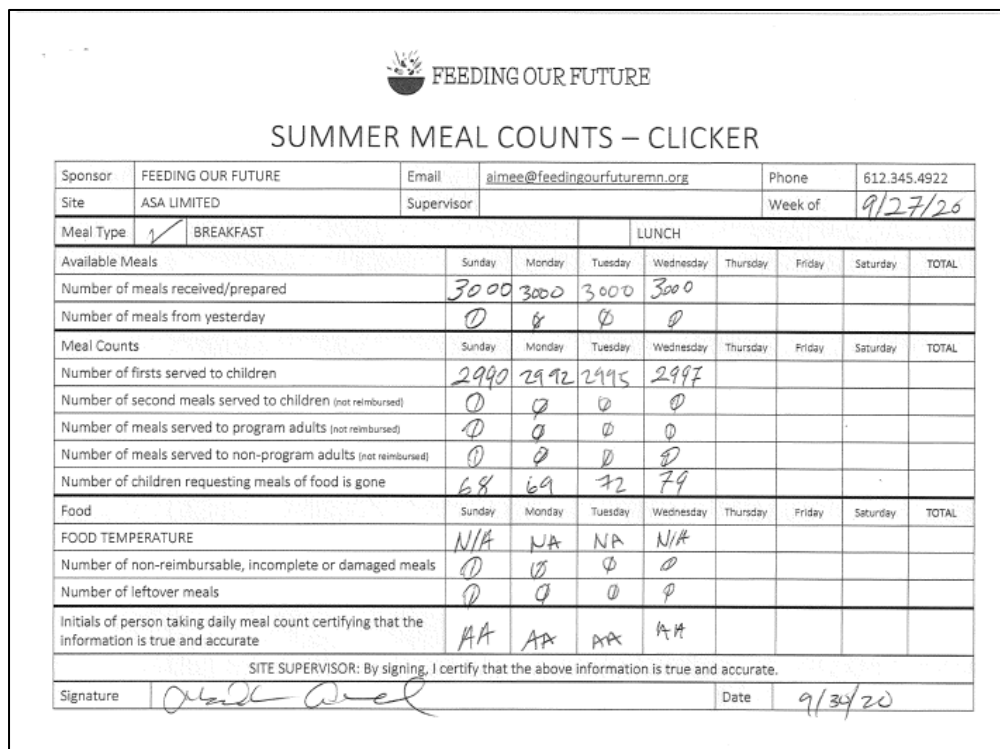 FEEDING OUR FUTURE
SUMMER MEAL COUNTS – CLICKER
Sponsor FEEDING OUR FUTURE Email aimee@feedingourfuturemn.org Phone 612.345.4922
Site ASA LIMITED Supervisor Week of 9/27/20
Meal Type ✓ BREAKFAST LUNCH
Available Meals Sunday Monday Tuesday Wednesday Thursday Friday Saturday TOTAL
Number of meals received/prepared 3000 3000 3000 3000
Number of meals from yesterday 0 0 0 0
Meal Counts Sunday Monday Tuesday Wednesday Thursday Friday Saturday TOTAL
Number of firsts served to children 2990 2992 2995 2997
Number of second meals served to children (not reimbursed) 0 0 0 0
Number of meals served to program adults (not reimbursed) 0 0 0 0
Number of meals served to non-program adults (not reimbursed) 0 0 0 0
Number of children requesting meals of food is gone 68 69 72 79
Food Sunday Monday Tuesday Wednesday Thursday Friday Saturday TOTAL
FOOD TEMPERATURE N/A NA NA N/A
Number of non-reimbursable, incomplete or damaged meals 0 0 0 0
Number of leftover meals 0 0 0 0
Initials of person taking daily meal count certifying that the
information is true and accurate AA AA AA AA
SITE SUPERVISOR: By signing, I certify that the above information is true and accurate.
Signature Date 9/30/20